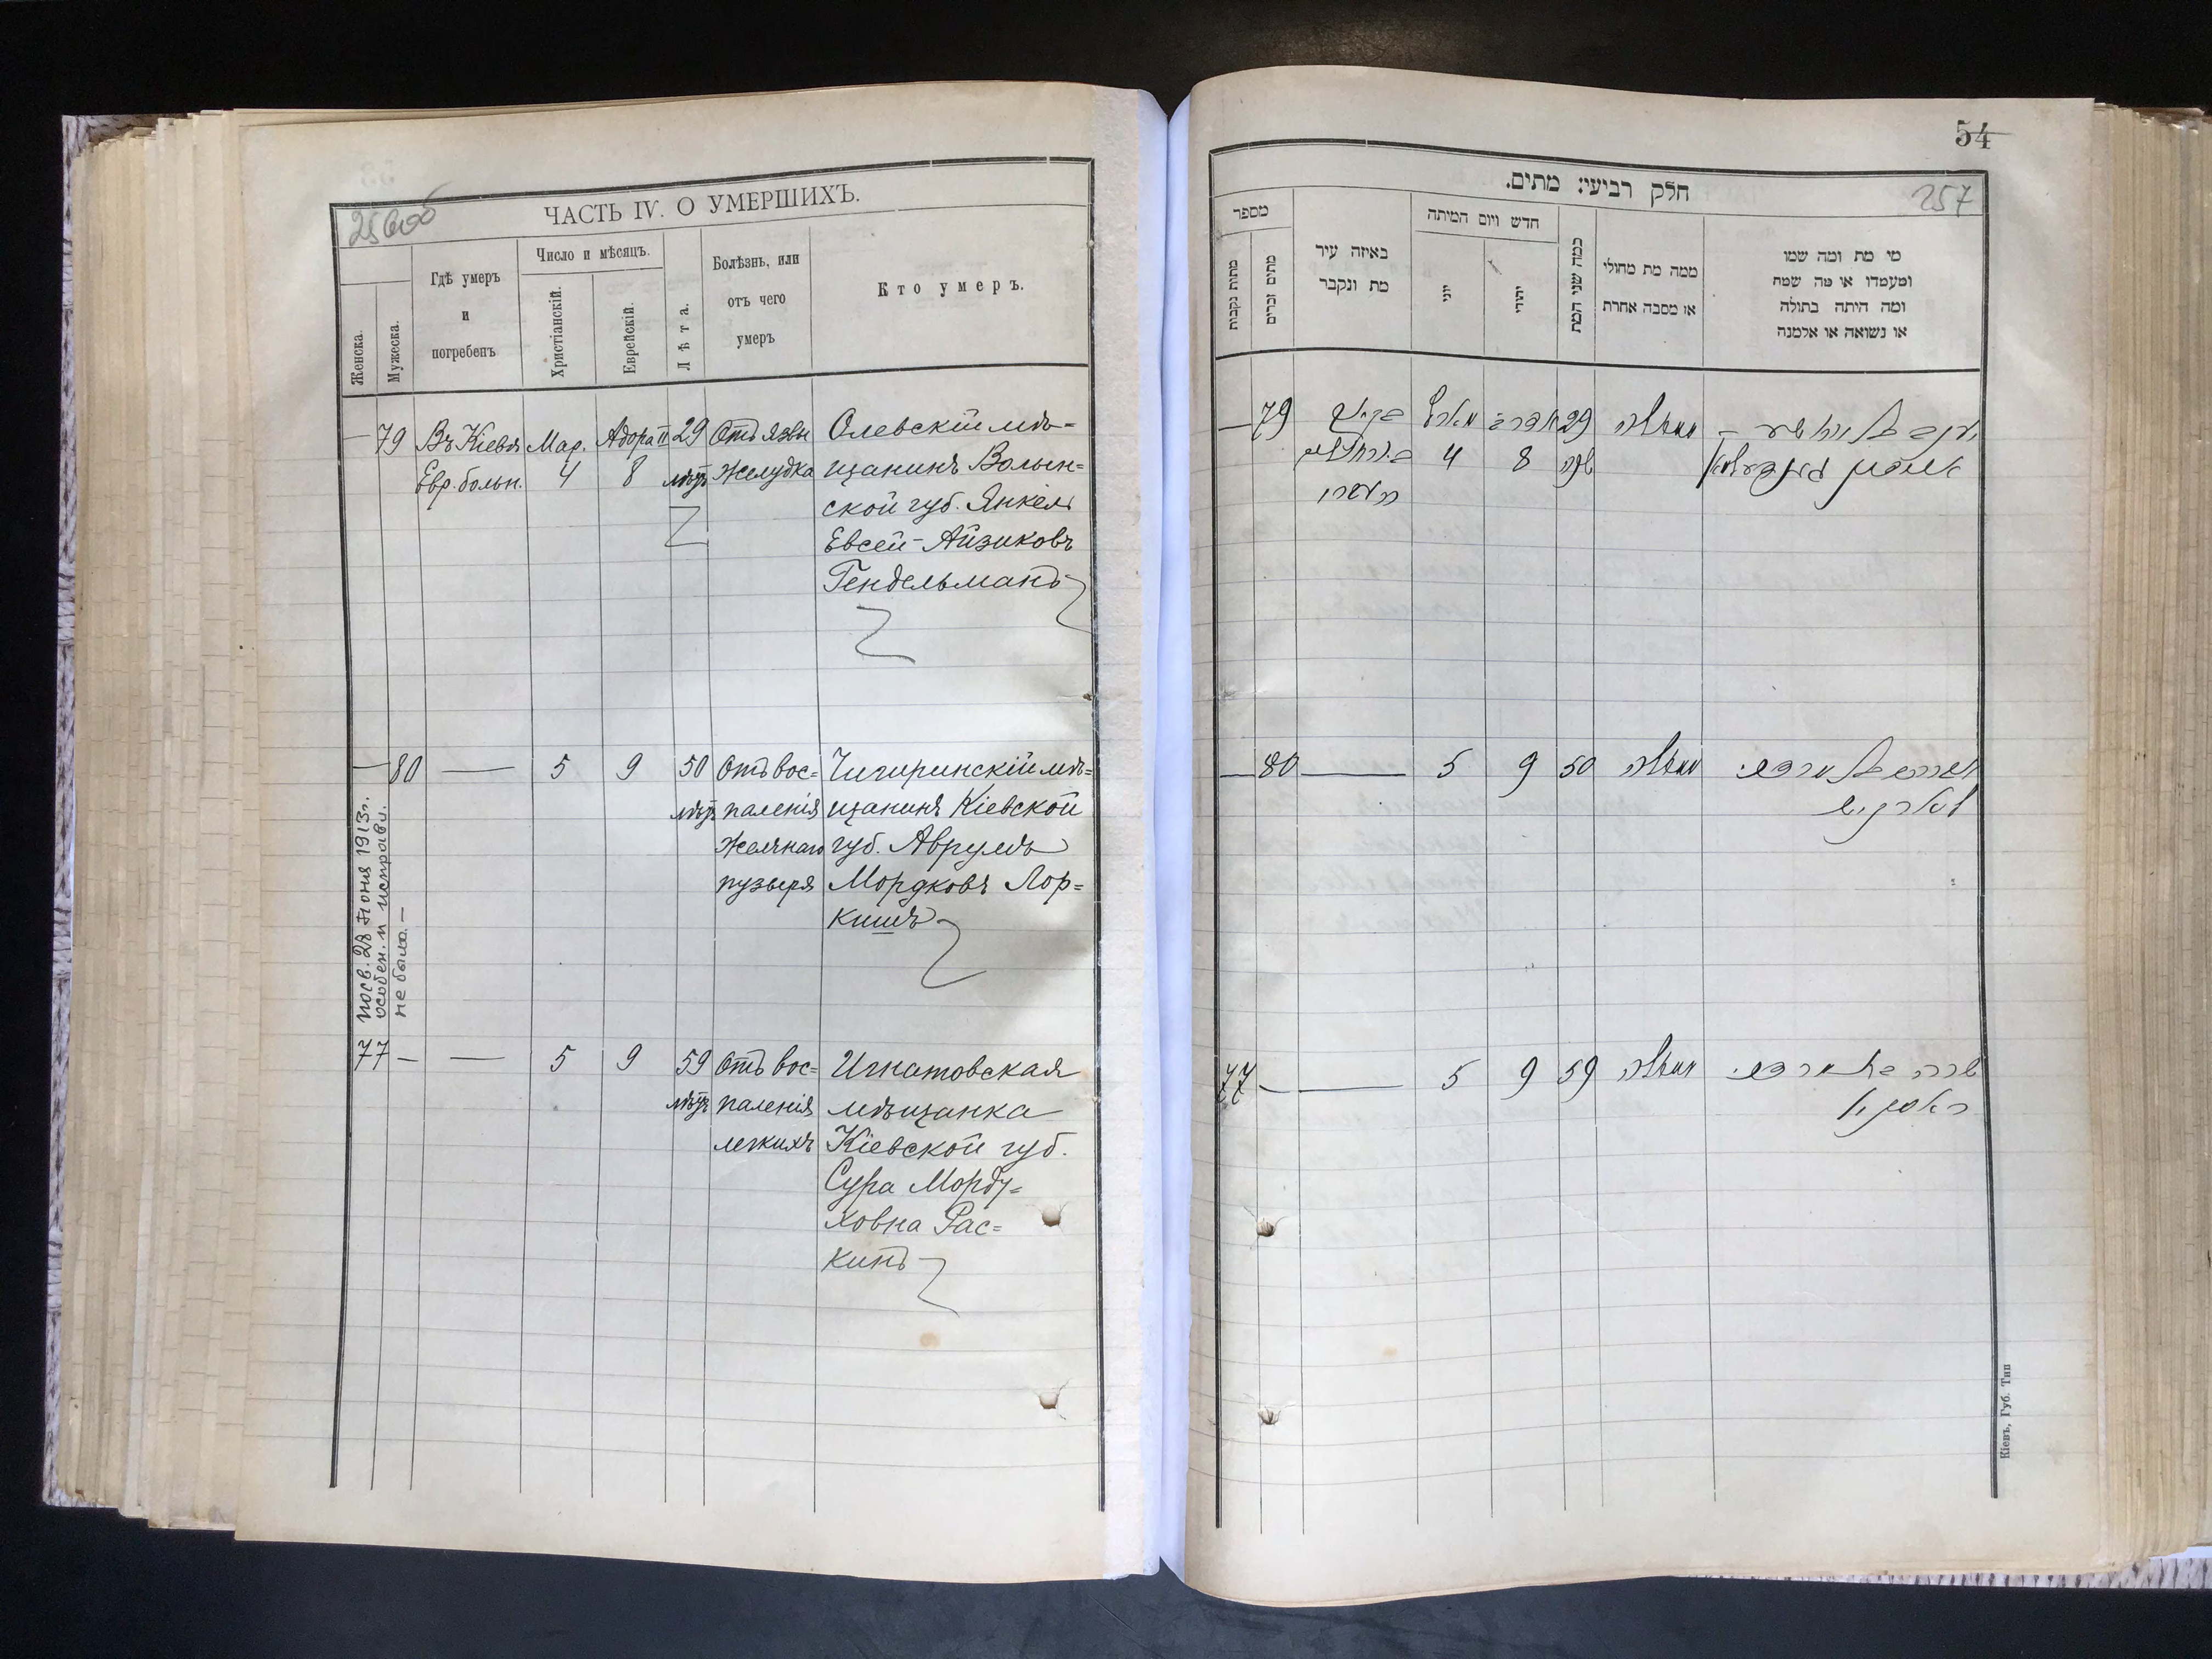 256об
ЧАСТЬ IV. О УМЕРШИХЪ.
Женска.
Мужеска.
Гдѣ умеръ
и
погребенъ
Число и мѣсяцъ.
Христіанскій.
Еврейскій.
Лѣта.
Болѣзнь, или
отъ чего
умеръ
Кто умеръ.
— 79 Въ Кіевѣ Мар. Адора II 29 Отъ язвы Олевскій мѣ=
Евр. больн. 4 8 лѣтъ желудка щанинъ Волын=
ской губ. Янкель
Евсей-Айзиковъ
Гендельманъ
— 80 — 5 9 50 Отъ вос= Чигиринскій мѣ=
лѣтъ паленія щанинъ Кіевской
желчнаго губ. Аврумъ
пузыря Мордковъ Лор=
кишъ
посв. 28 Іюня 1913г.
особен. и исправл.
не было.—
77 — — 5 9 59 Отъ вос= Игнатовская
лѣтъ паленія мѣщанка
легкихъ Кіевской губ.
Сура Морду=
ховна Рас=
кинъ
54
257
חלק רביעי: מתים.
מספר
מתות נקבות
מתים זכרים
באיזה עיר
מת ונקבר
חדש ויום המיתה
יוני
יהודי
כמה שני המת
ממה מת מחולי
או מסבה אחרת
מי מת ומה שמו
ומעמדו או מה שמת
ומה היתה בתולה
או נשואה או אלמנה
— 79 29
4 8
— 80 — 5 9 50
77 — — 5 9 59
Кіевъ, Губ. Тип